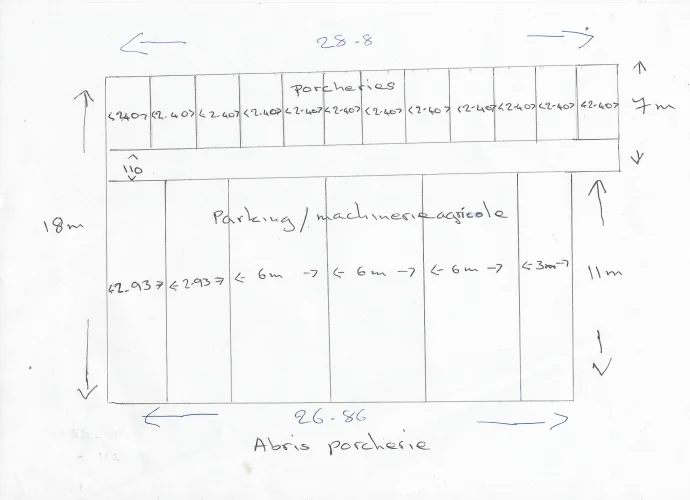 28.8
porcheries
<2.40> <2.40> <2.40> <2.40> <2.40> <2.40> <2.40> <2.40> <2.40> <2.40> <2.40> <2.40>
7m
110
18m
Parking/machinerie agricole
<2.93> <2.93> <- 6m -> <- 6m -> <- 6m -> <- 3m ->
11m
26.86
Abris porcherie